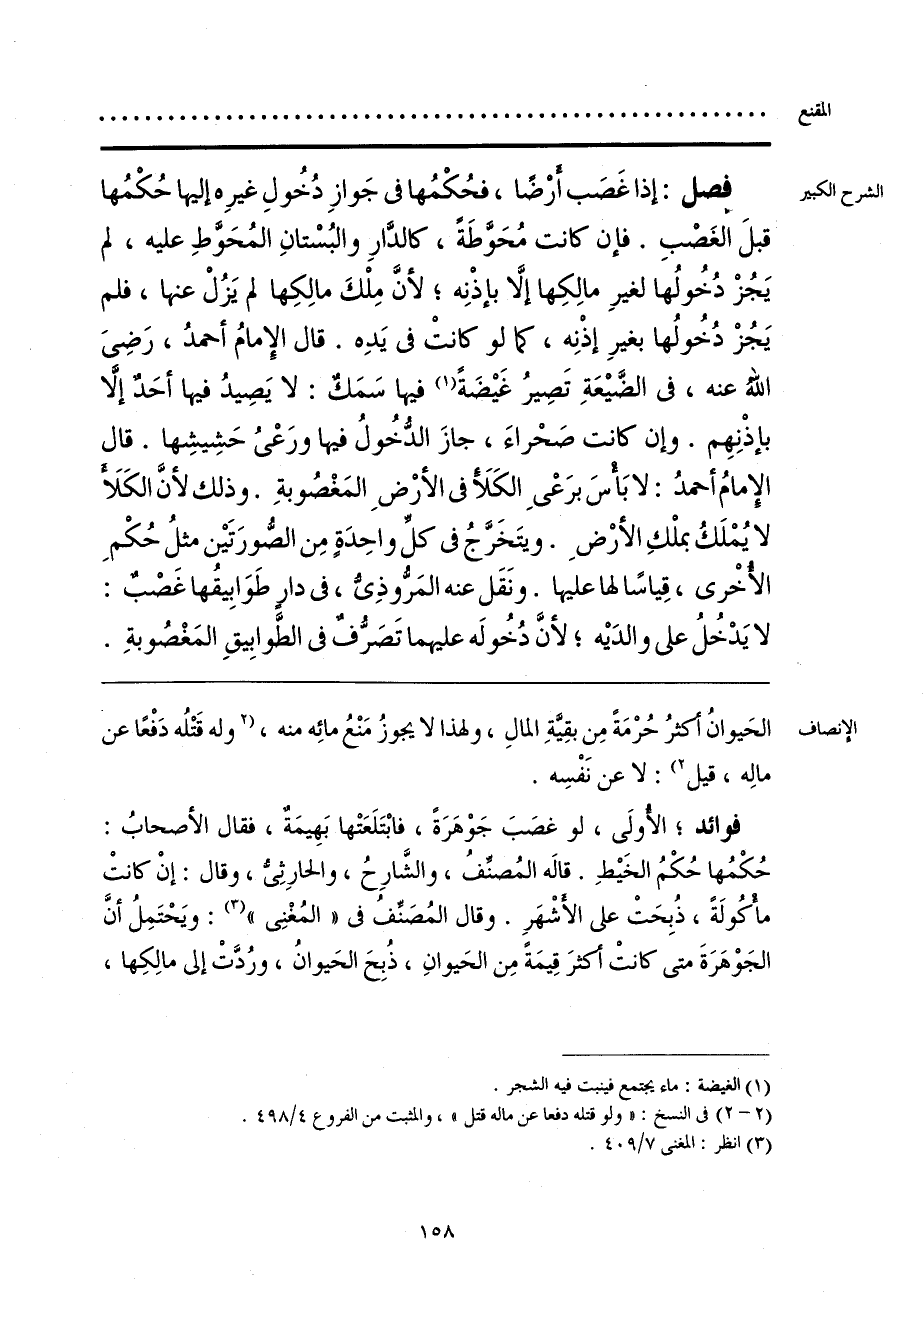 المقنع ............................................................
الشرح الكبير
فصل : إذا غَصَب أَرْضًا ، فحُكْمُها فى جَوازِ دُخُولِ غيرِه إليها حُكْمُها
قبلَ الغَصْبِ . فإن كانت مُحَوَّطَةً ، كالدَّارِ والبُسْتانِ المُحَوَّطِ عليه ، لم
يَجُزْ دُخُولُها لغيرِ مالِكِها إلَّا بإذْنِه ؛ لأنَّ مِلْكَ مالِكِها لم يَزُلْ عنها ، فلم
يَجُزْ دُخُولُها بغيرِ إذْنِه ، كما لو كانتْ فى يَدِه . قال الإِمامُ أحمدُ ، رَضِىَ
اللهُ عنه ، فى الضَّيْعَةِ تَصِيرُ غَيْضَةً(١) فيها سَمَكٌ : لا يَصِيدُ فيها أحَدٌ إلَّا
بإذْنِهِم . وإن كانت صَحْراءَ ، جازَ الدُّخُولُ فيها ورَعْىُ حَشِيشِها . قال
الإِمامُ أحمدُ : لا بَأْسَ برَعْىِ الكَلَأِ فى الأَرْضِ المَغْصُوبةِ . وذلك لأنَّ الكَلَأَ
لا يُمْلَكُ بمِلْكِ الأَرْضِ . ويتَخَرَّجُ فى كلِّ واحِدَةٍ مِن الصُّورَتَيْن مثلُ حُكْمِ
الأُخْرى ، قِياسًا لها عليها . ونَقَل عنه المَرُّوذِىُّ ، فى دارٍ طَوَابِيقُها غَصْبٌ :
لا يَدْخُلُ على والدَيْه ؛ لأنَّ دُخُولَه عليهما تَصَرُّفٌ فى الطَّوابِيقِ المَغْصُوبةِ .
الإنصاف
الحَيوانُ أكثرُ حُرْمَةً مِن بقِيَّةِ المالِ ، ولهذا لا يجوزُ مَنْعُ مائِه منه ، (٢ وله قَتْلُه دَفْعًا عن
مالِه ، قيل٢) : لا عن نَفْسِه .
فوائد ؛ الأُولَى ، لو غصَبَ جَوْهَرَةً ، فابْتَلَعَتْها بَهِيمَةٌ ، فقال الأصحابُ :
حُكْمُها حُكْمُ الخَيْطِ . قالَه المُصنِّفُ ، والشَّارِحُ ، والحارثِىُّ ، وقال : إنْ كانتْ
مأْكُولَةً ، ذُبِحَتْ على الأَشْهَرِ . وقال المُصَنِّفُ فى « المُغْنِى »(٣) : ويَحْتَمِلُ أنَّ
الجَوْهَرَةَ متى كانتْ أكثرَ قِيمَةً مِن الحَيوانِ ، ذُبِحَ الحَيوانُ ، ورُدَّتْ إلى مالِكِها ،
(١) الغيضة : ماء يجتمع فينبت فيه الشجر .
(٢ - ٢) فى النسخ : « ولو قتله دفعا عن ماله قتل » ، والمثبت من الفروع ٤٩٨/٤ .
(٣) انظر : المغنى ٤٠٩/٧ .
١٥٨